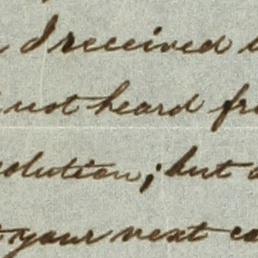 I received
not heard fr
olution; but
your next co